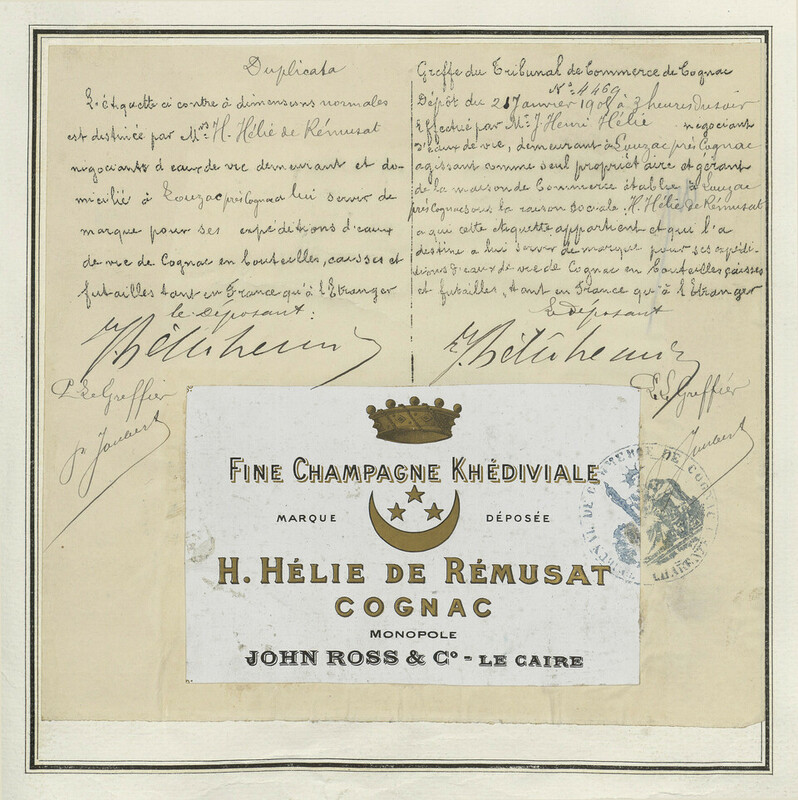 Duplicata
L'étiquette ci contre à dimensions normales
est destinée par Mrs H. Hélie de Rémusat
négociants d'eaux de vie demeurant et do-
micilié à Louzac près Cognac à lui servir de
marque pour ses expéditions d'eaux
de vie de Cognac en bouteilles, caisses et
futailles tant en France qu'à l'Etranger
le déposant:
P. Le Greffier
Joubert
Greffe du Tribunal de Commerce de Cognac
No. 4469
Dépôt du 21 Janvier 1908 à 3 heures du soir
Effectué par Mr. J. Henri Hélie negociant
d'Eaux de vie, demeurant à Louzac près Cognac
agissant comme seul propriétaire et gérant
de la maison de Commerce établie à Louzac
près Cognac sous la raison sociale H. Hélie de Rémusat
a qui cette etiquette appartient et qui l'a
destine a lui servir de marque pour ses expédi-
tions d'eaux de vie de Cognac en bouteilles, caisses
et futailles, tant en France qu'à l'Etranger
Le déposant
P. Le Greffier
Joubert
FINE CHAMPAGNE KHÉDIVIALE
MARQUE DÉPOSÉE
H. HÉLIE DE RÉMUSAT
COGNAC
MONOPOLE
JOHN ROSS & Co - LE CAIRE
DE COMMERCE DE COGNAC